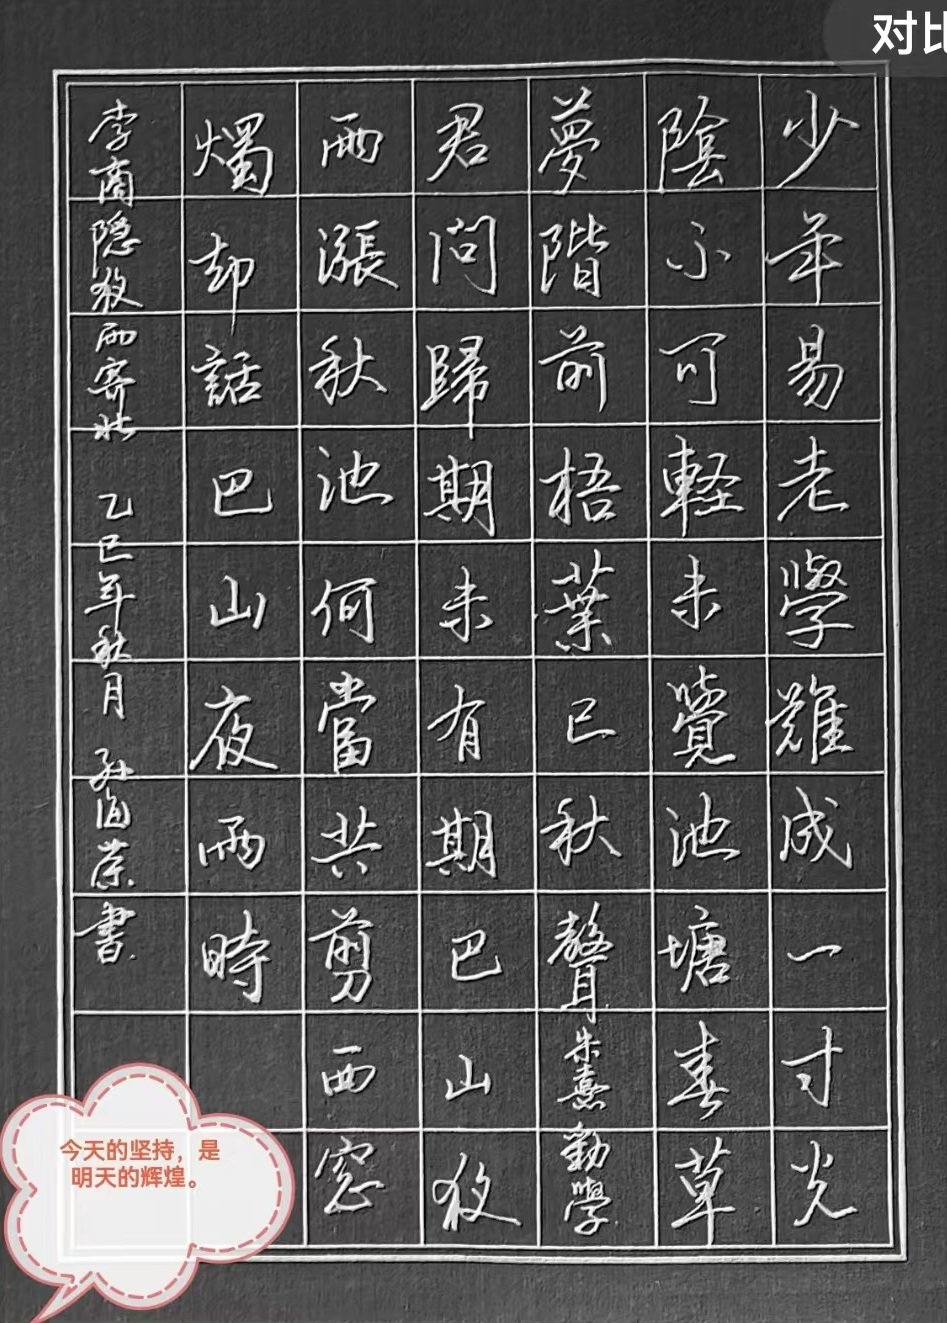 对比
少年易老學難成一寸光
陰不可軽未覺池塘春草
夢階前梧葉已秋聲朱熹勸學
君問歸期未有期巴山夜
雨漲秋池何當共剪西窓
燭却話巴山夜雨時
李商隐夜雨寄北 乙巳年秋月 孙海荣書
今天的坚持，是
明天的辉煌。